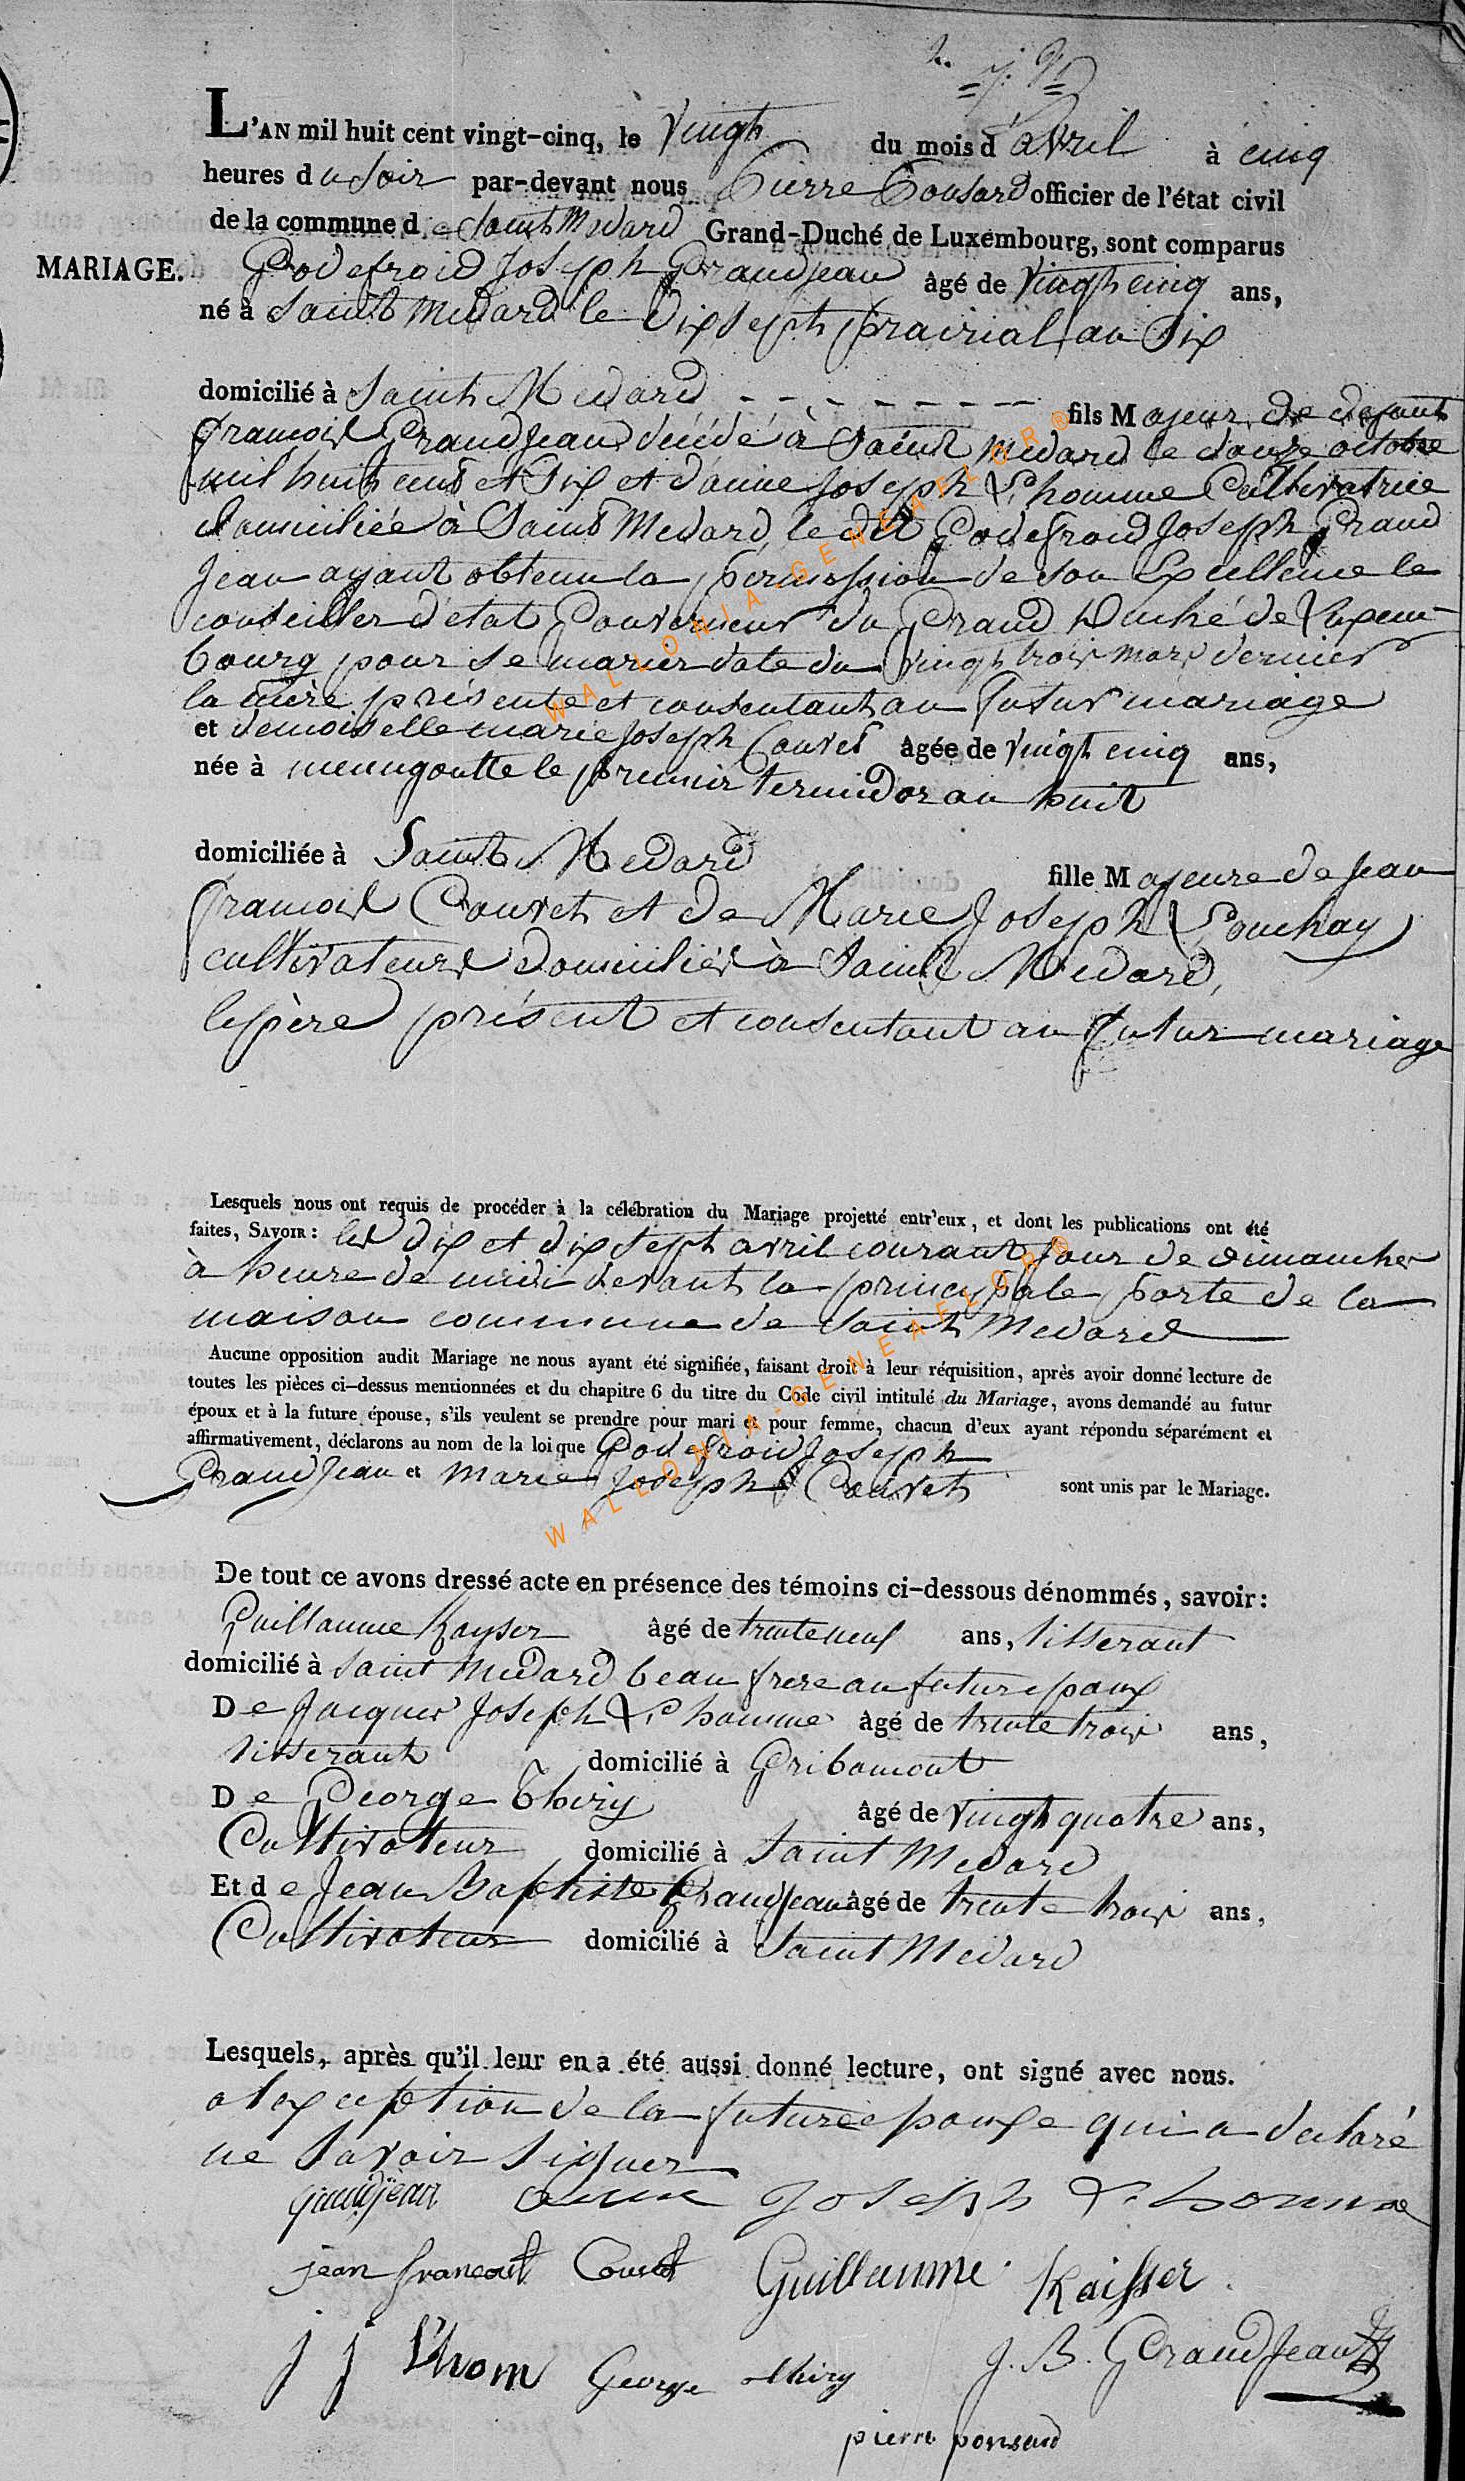 L'AN mil huit cent vingt-cinq, le vingt du mois d'avril à cinq
heures du Soir par-devant nous Pierre Ponsard officier de l'état civil
de la commune de Saint Medard Grand-Duché de Luxembourg, sont comparus
MARIAGE.
Godefroid Joseph Grandjean âgé de vingt cinq ans,
né à Saint Medard le dix sept prairial an Six
domicilié à Saint Medard - - - - - - - - fils Majeur de defunt
françois GrandJean décédé à Saint Medard le douze octobre
mil huit cent et Six et d'anne Joseph L'homme Cultivatrice
domiciliée à Saint Medard, le dit Godefroid Joseph Grand
Jean ayant obtenu la permission de son Excellence le
conseiller d'etat Gouverneur du Grand Duché de Luxem-
bourg pour se marier date du vingt trois mars dernier
la mère présente et consentant au futur mariage
et demoiselle marie Joseph Couvet âgée de vingt cinq ans,
née à menugoutte le premier termidor an huit
domiciliée à Saint Medard fille Majeure de Jean
françois Couvet et de Marie Joseph Pouchay
cultivateurs domiciliés à Saint Medard,
le père présent et consentant au futur mariage
Lesquels nous ont requis de procéder à la célébration du Mariage projetté entr'eux, et dont les publications ont été
faites, SAVOIR : les dix et dix sept avril courant jour de dimanche
à heure de midi devant la principale porte de la
maison commune de Saint Medard
Aucune opposition audit Mariage ne nous ayant été signifiée, faisant droit à leur réquisition, après avoir donné lecture de
toutes les pièces ci-dessus mentionnées et du chapitre 6 du titre du Code civil intitulé du Mariage, avons demandé au futur
époux et à la future épouse, s'ils veulent se prendre pour mari et pour femme, chacun d'eux ayant répondu séparément et
affirmativement, déclarons au nom de la loi que Godefroid Joseph
GrandJean et Marie Joseph Couvet sont unis par le Mariage.
De tout ce avons dressé acte en présence des témoins ci-dessous dénommés, savoir :
Guillaume Kayser âgé de trente neuf ans, tisserant
domicilié à Saint Medard beau frere au futur epoux
De Jacques Joseph L'homme âgé de trente trois ans,
tisserant domicilié à Gribomont
De George Thiry âgé de vingt quatre ans,
Cultivateur domicilié à Saint Medard
Et de Jean Baptiste Grandjean âgé de trente trois ans,
Cultivateur domicilié à Saint Medard
Lesquels, après qu'il leur en a été aussi donné lecture, ont signé avec nous.
a l'exception de la future epouse qui a declaré
ne savoir signer
grandjean anne Joseph L'homme
jean francoit Couvet Guillaume Kaisser
j j L'hom George thiry J. B. GrandJean
pierre ponsard
WALLONIA-GENEAFLOR®
WALLONIA-GENEAFLOR®